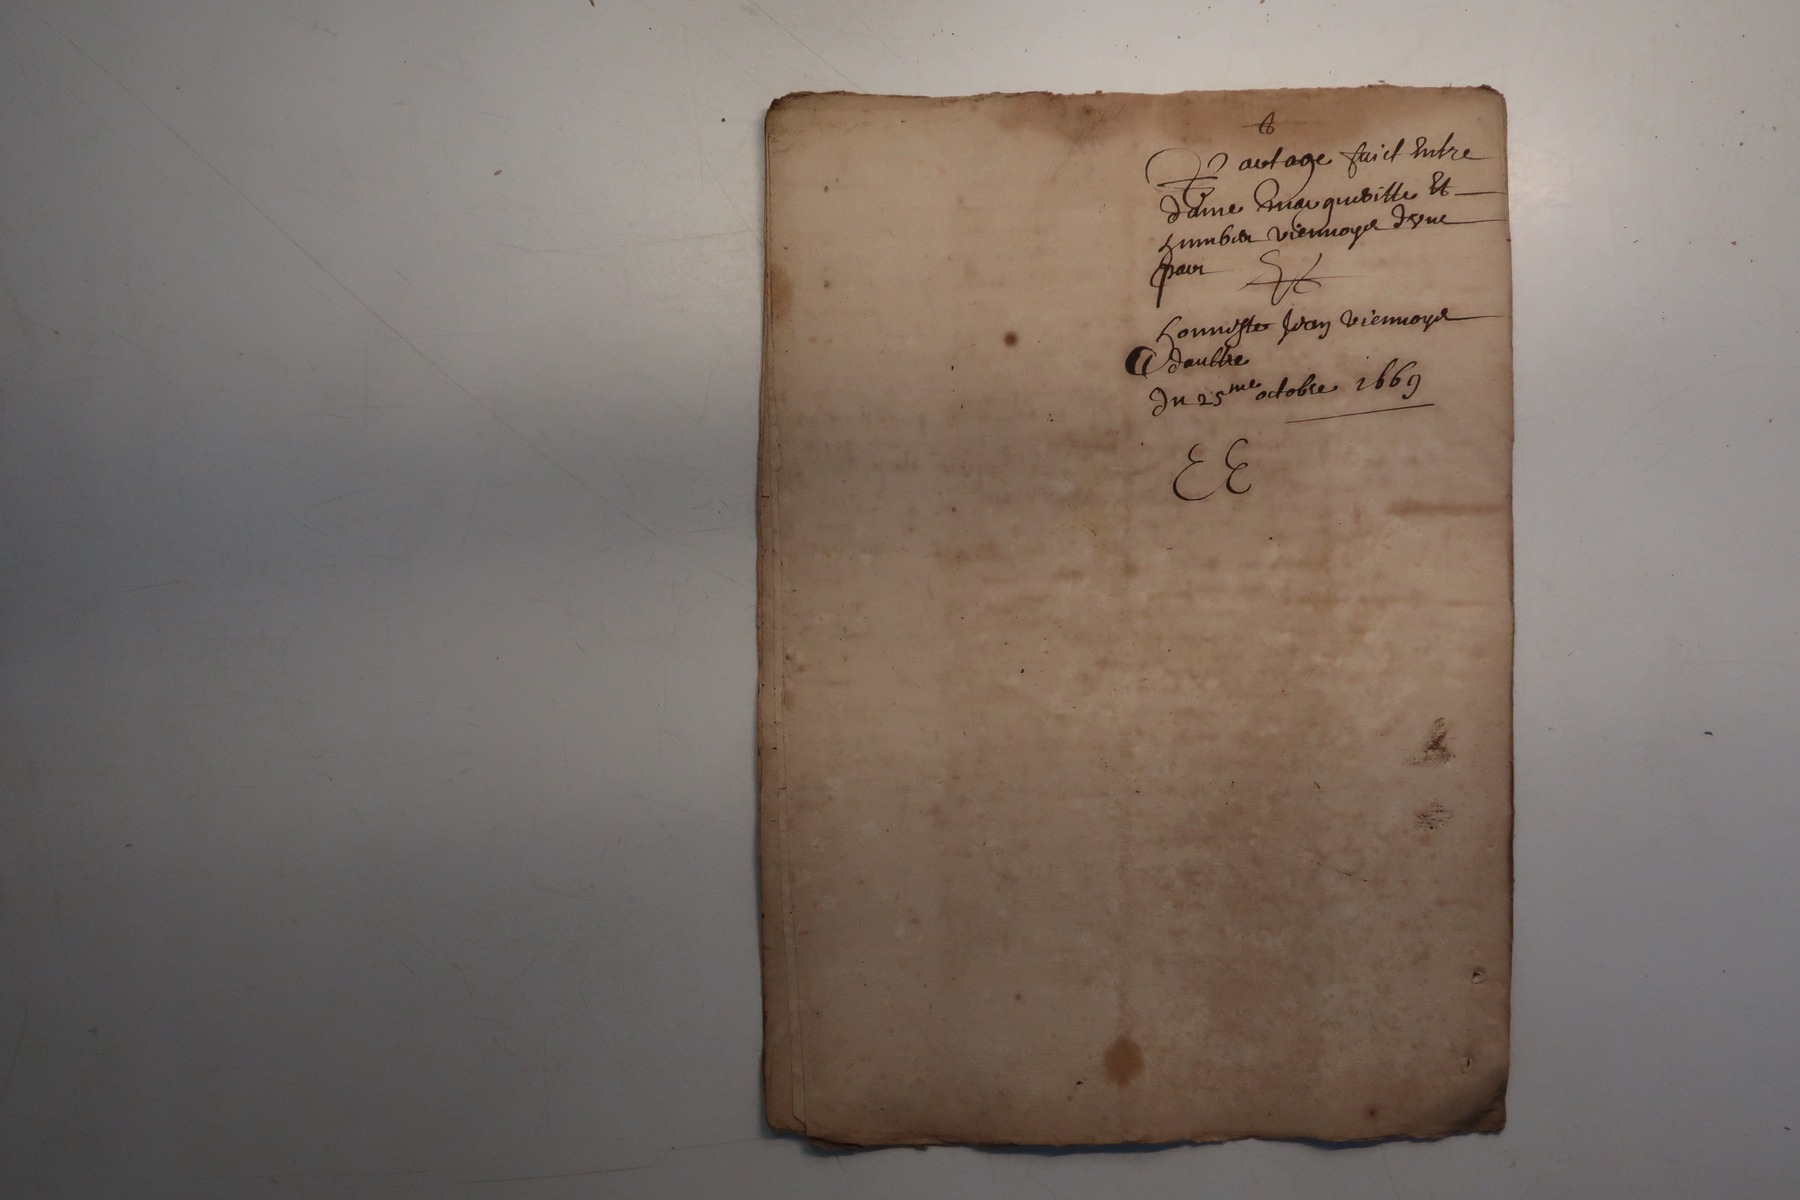 6
Partage faict Entre
dame margueritte Et
humber viennoys dvne
part Et
honneste Jean viennoys
daultre
Du 25me octobre 1669
EE